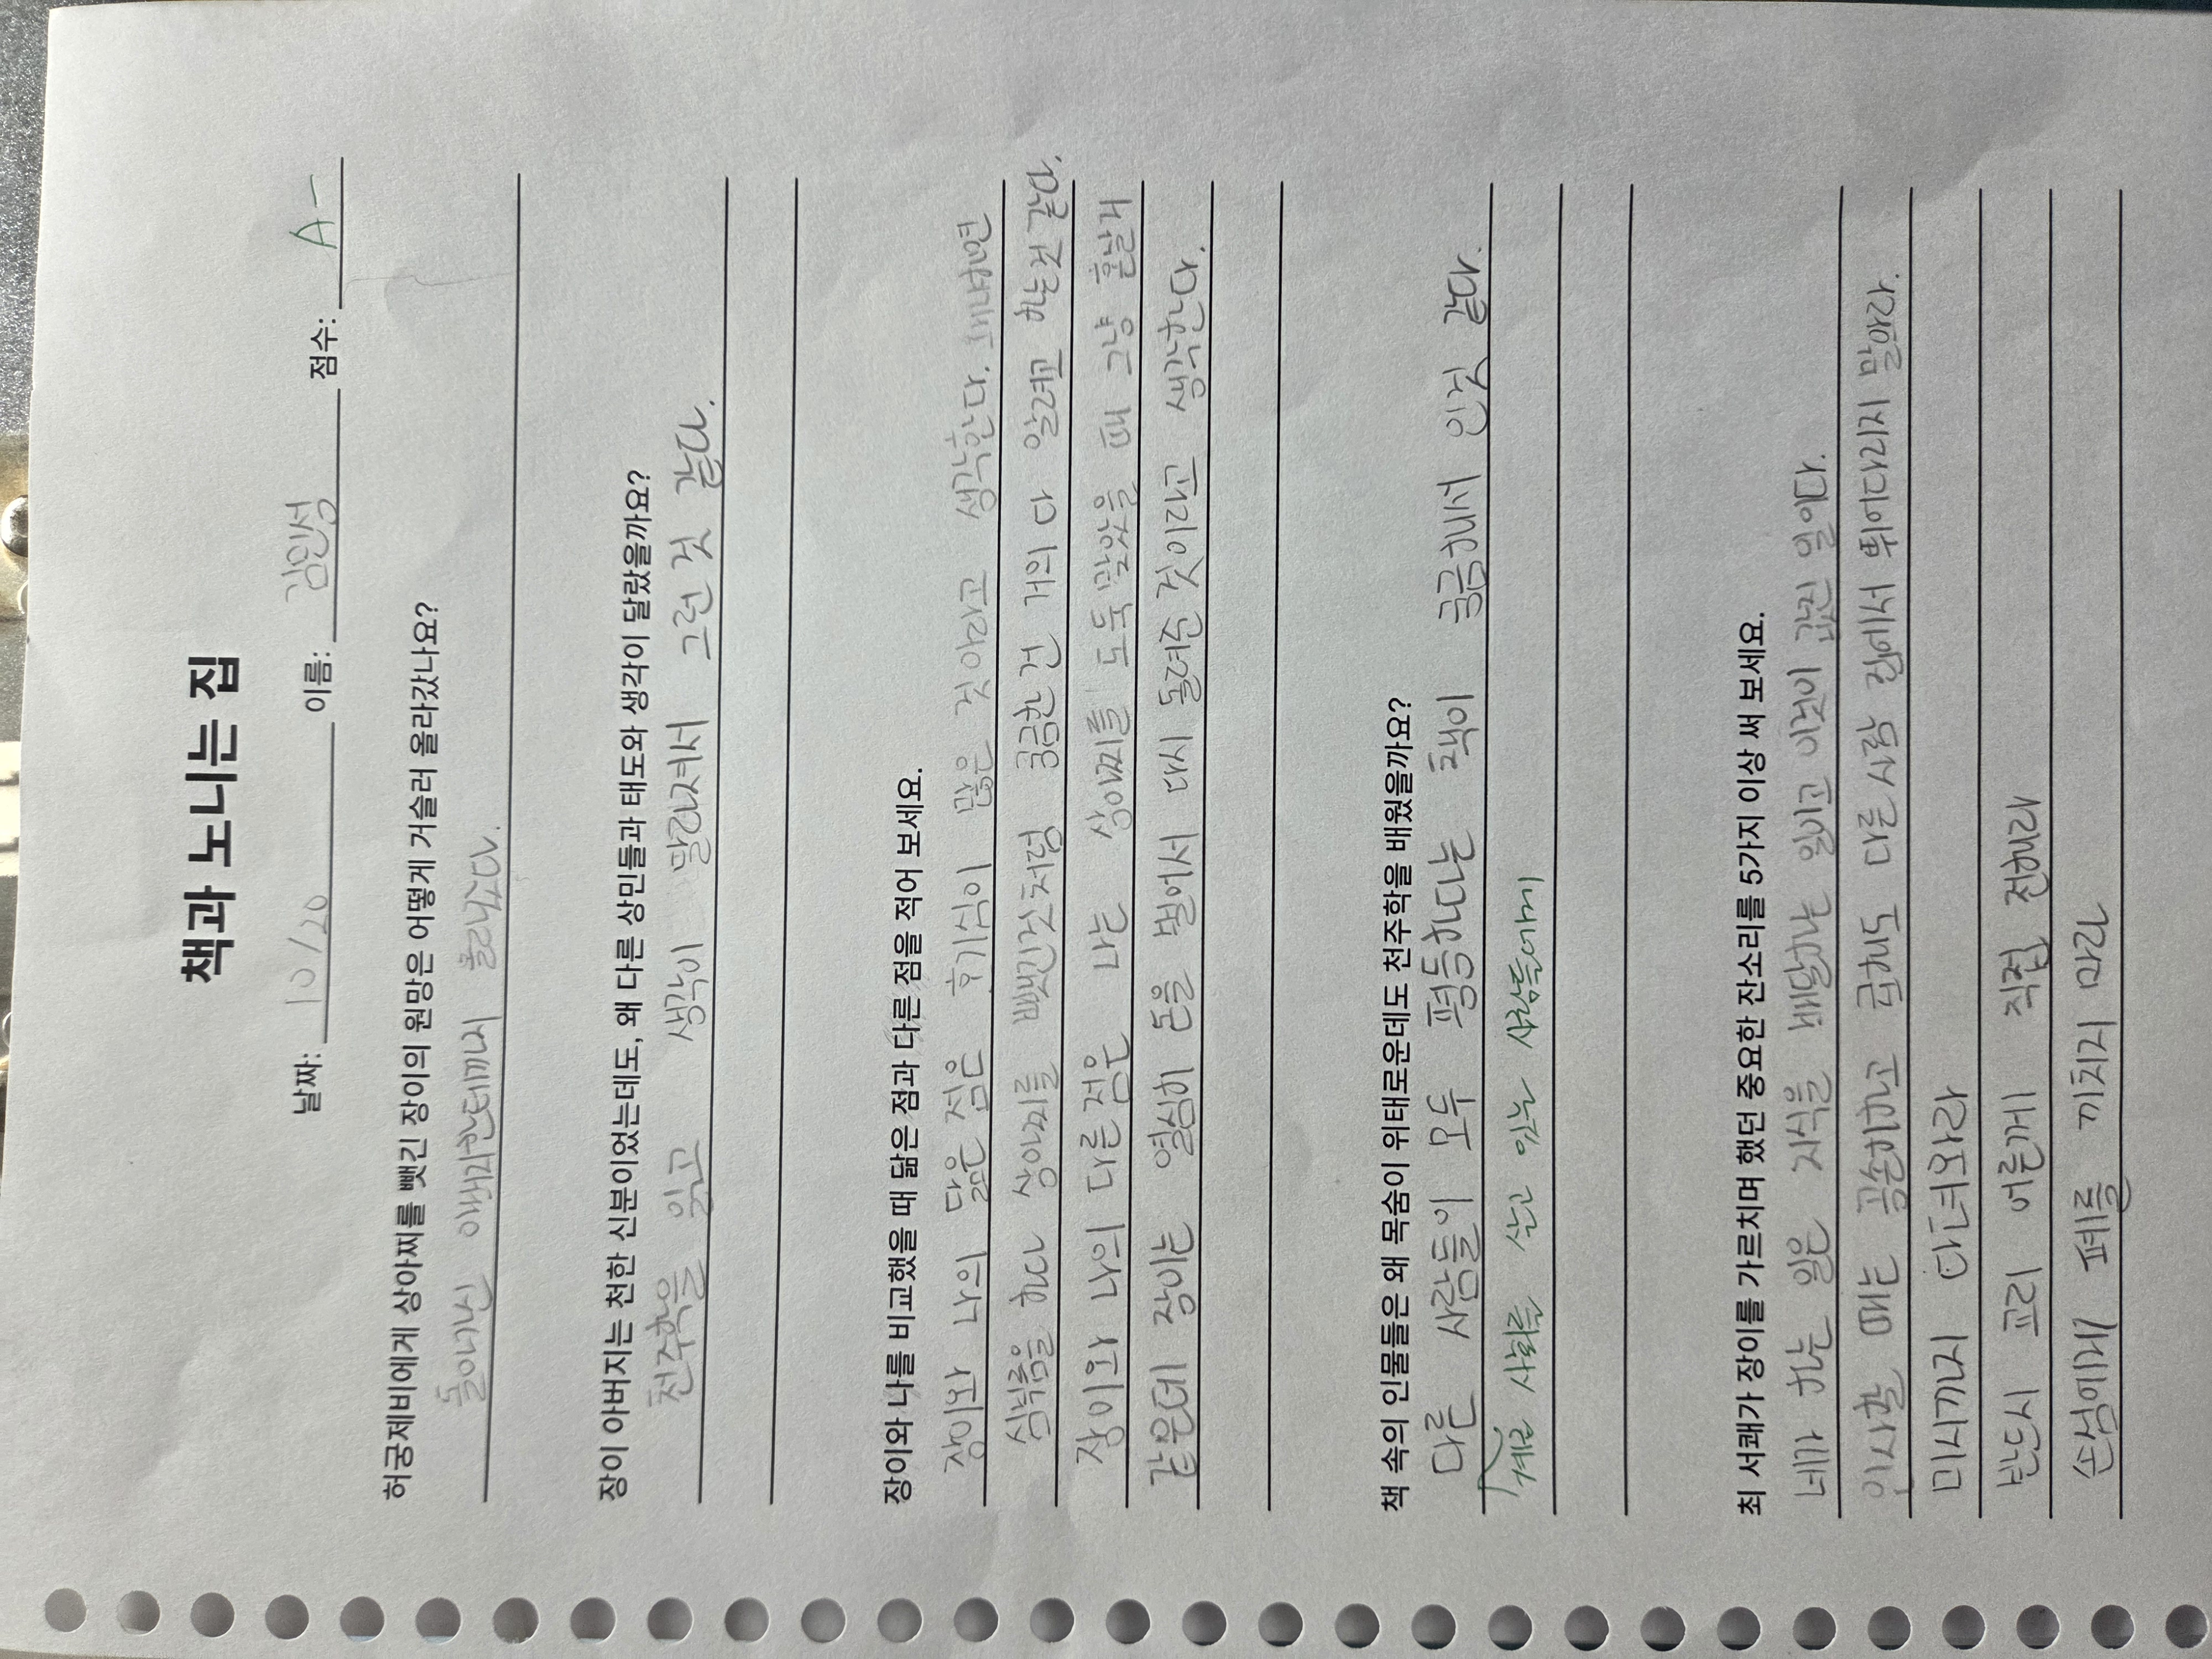 책과 노니는 집
날짜: 10/20 이름: 김민성 점수: A-
허궁제비에게 상아찌를 뺏긴 장이의 원망은 어떻게 거슬러 올라갔나요?
돌아가신 아버지한테까지 올라갔다.
장이 아버지는 천한 신분이었는데도, 왜 다른 상민들과 태도와 생각이 달랐을까요?
천주학을 읽고 생각이 달라져서 그런 것 같다.
장이와 나를 비교했을 때 닮은 점과 다른 점을 적어 보세요.
장이와 나의 닮은 점은 호기심이 많은 것이라고 생각한다. 왜냐면
심부름을 하다 상아찌를 뺏긴것처럼 궁금한 건 거의 다 알려고 하는것 같다.
장이와 나의 다른점은 나는 상아찌를 도둑 맞았을 때 그냥 혼날거
같은데 장이는 열심히 돈을 벌어서 다시 돌려준 것이라고 생각한다.
책 속의 인물들은 왜 목숨이 위태로운데도 천주학을 배웠을까요?
다른 사람들이 모두 평등하다는 책이 궁금해서 인것 같다.
계급 사회를 살고 있는 사람들에게
최 서쾌가 장이를 가르치며 했던 중요한 잔소리를 5가지 이상 써 보세요.
네가 하는 일은 지식을 배달하는 일이고 이것이 값진 일이다.
인사할 때는 공손히하고 급해도 다른 사람 집에서 뛰어다리지 말아라.
미시까지 다녀와라
반드시 교리 어른께 직접 전해라
손님에게 폐를 끼치지 마라